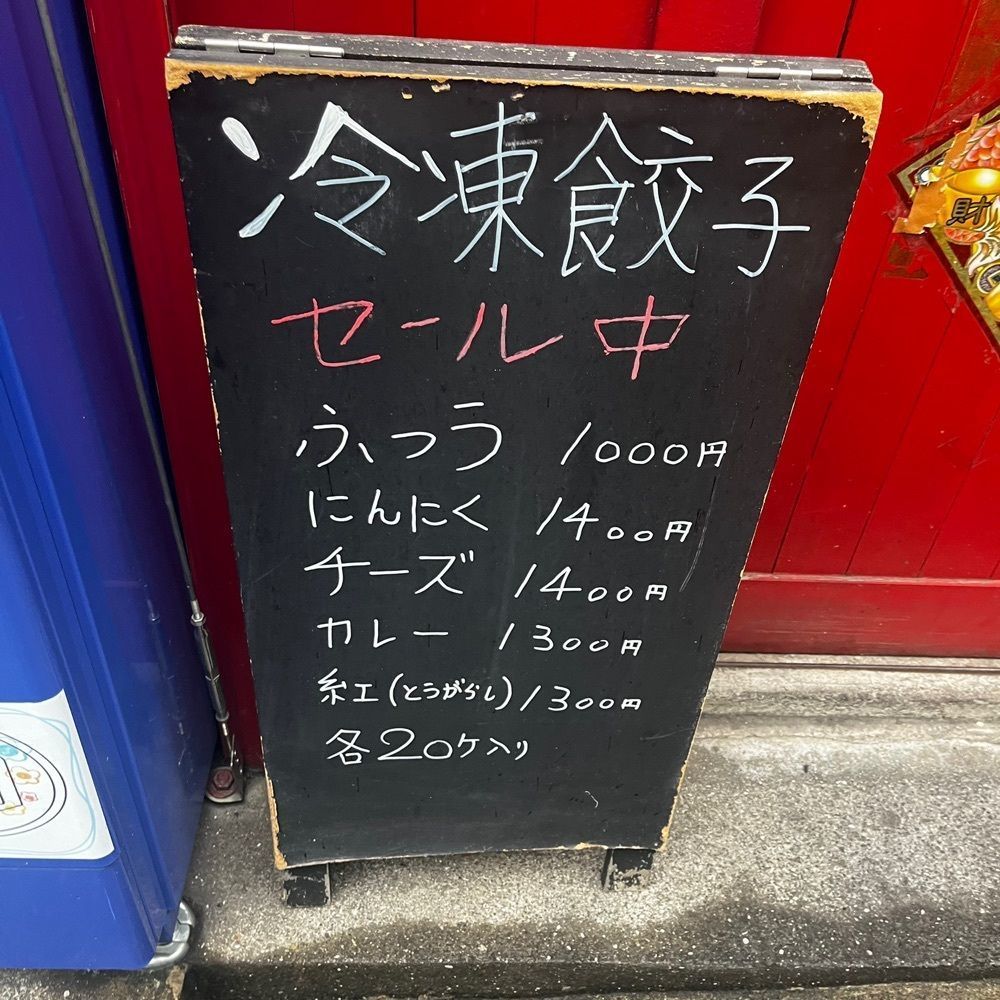 冷凍餃子
セール中
ふつう 1000円
にんにく 1400円
チーズ 1400円
カレー 1300円
紅(とうがらし) 1300円
各20ケ入り
財